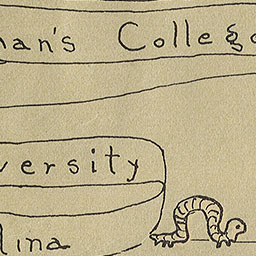 man's College
versity
lina